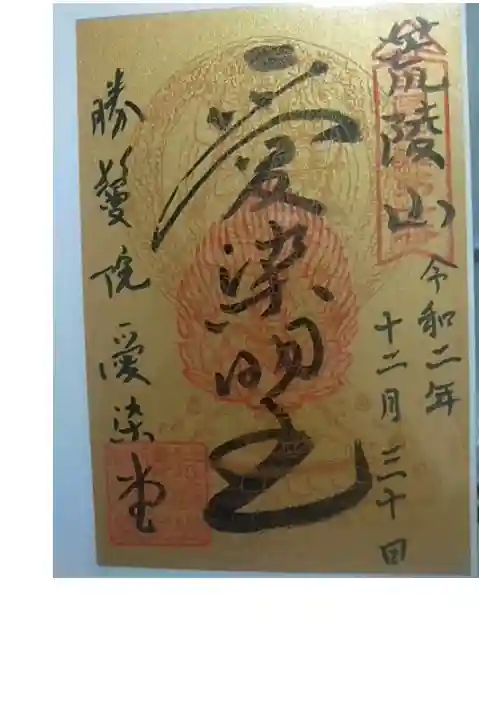 荒陵山
令和二年
十二月三十日
愛染明王
勝鬘院 愛染堂